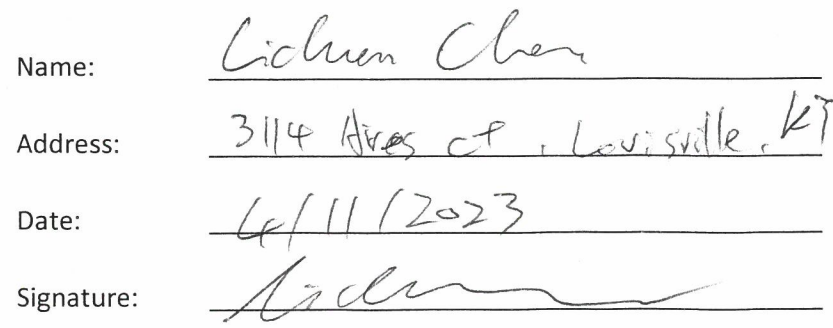 Name: Lichuan Chen
Address: 3114 Aires ct, Louisville, KY
Date: 4/11/2023
Signature: